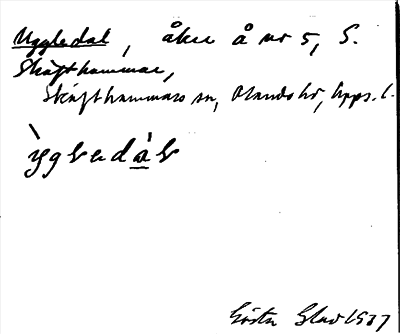 Uggledal, åker å nr 5, S.
Skäfthammar,
Skäfthammars sn, Olands hd, Upps. l.
ỳgledàl
Gösta Glad 1937